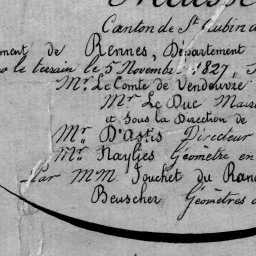 Canton de St Aubin d
ment de Rennes, Département
le terrain le 5 Novembre 1827,
Mr Le Comte de Vendeuvre
Mr Le Duc Mais
et sous la Direction de
Mr D'Astis Directeur
Mr Naylies Géomètre en
Par MM Jouchet du Ran
Beuscher Géomètres d